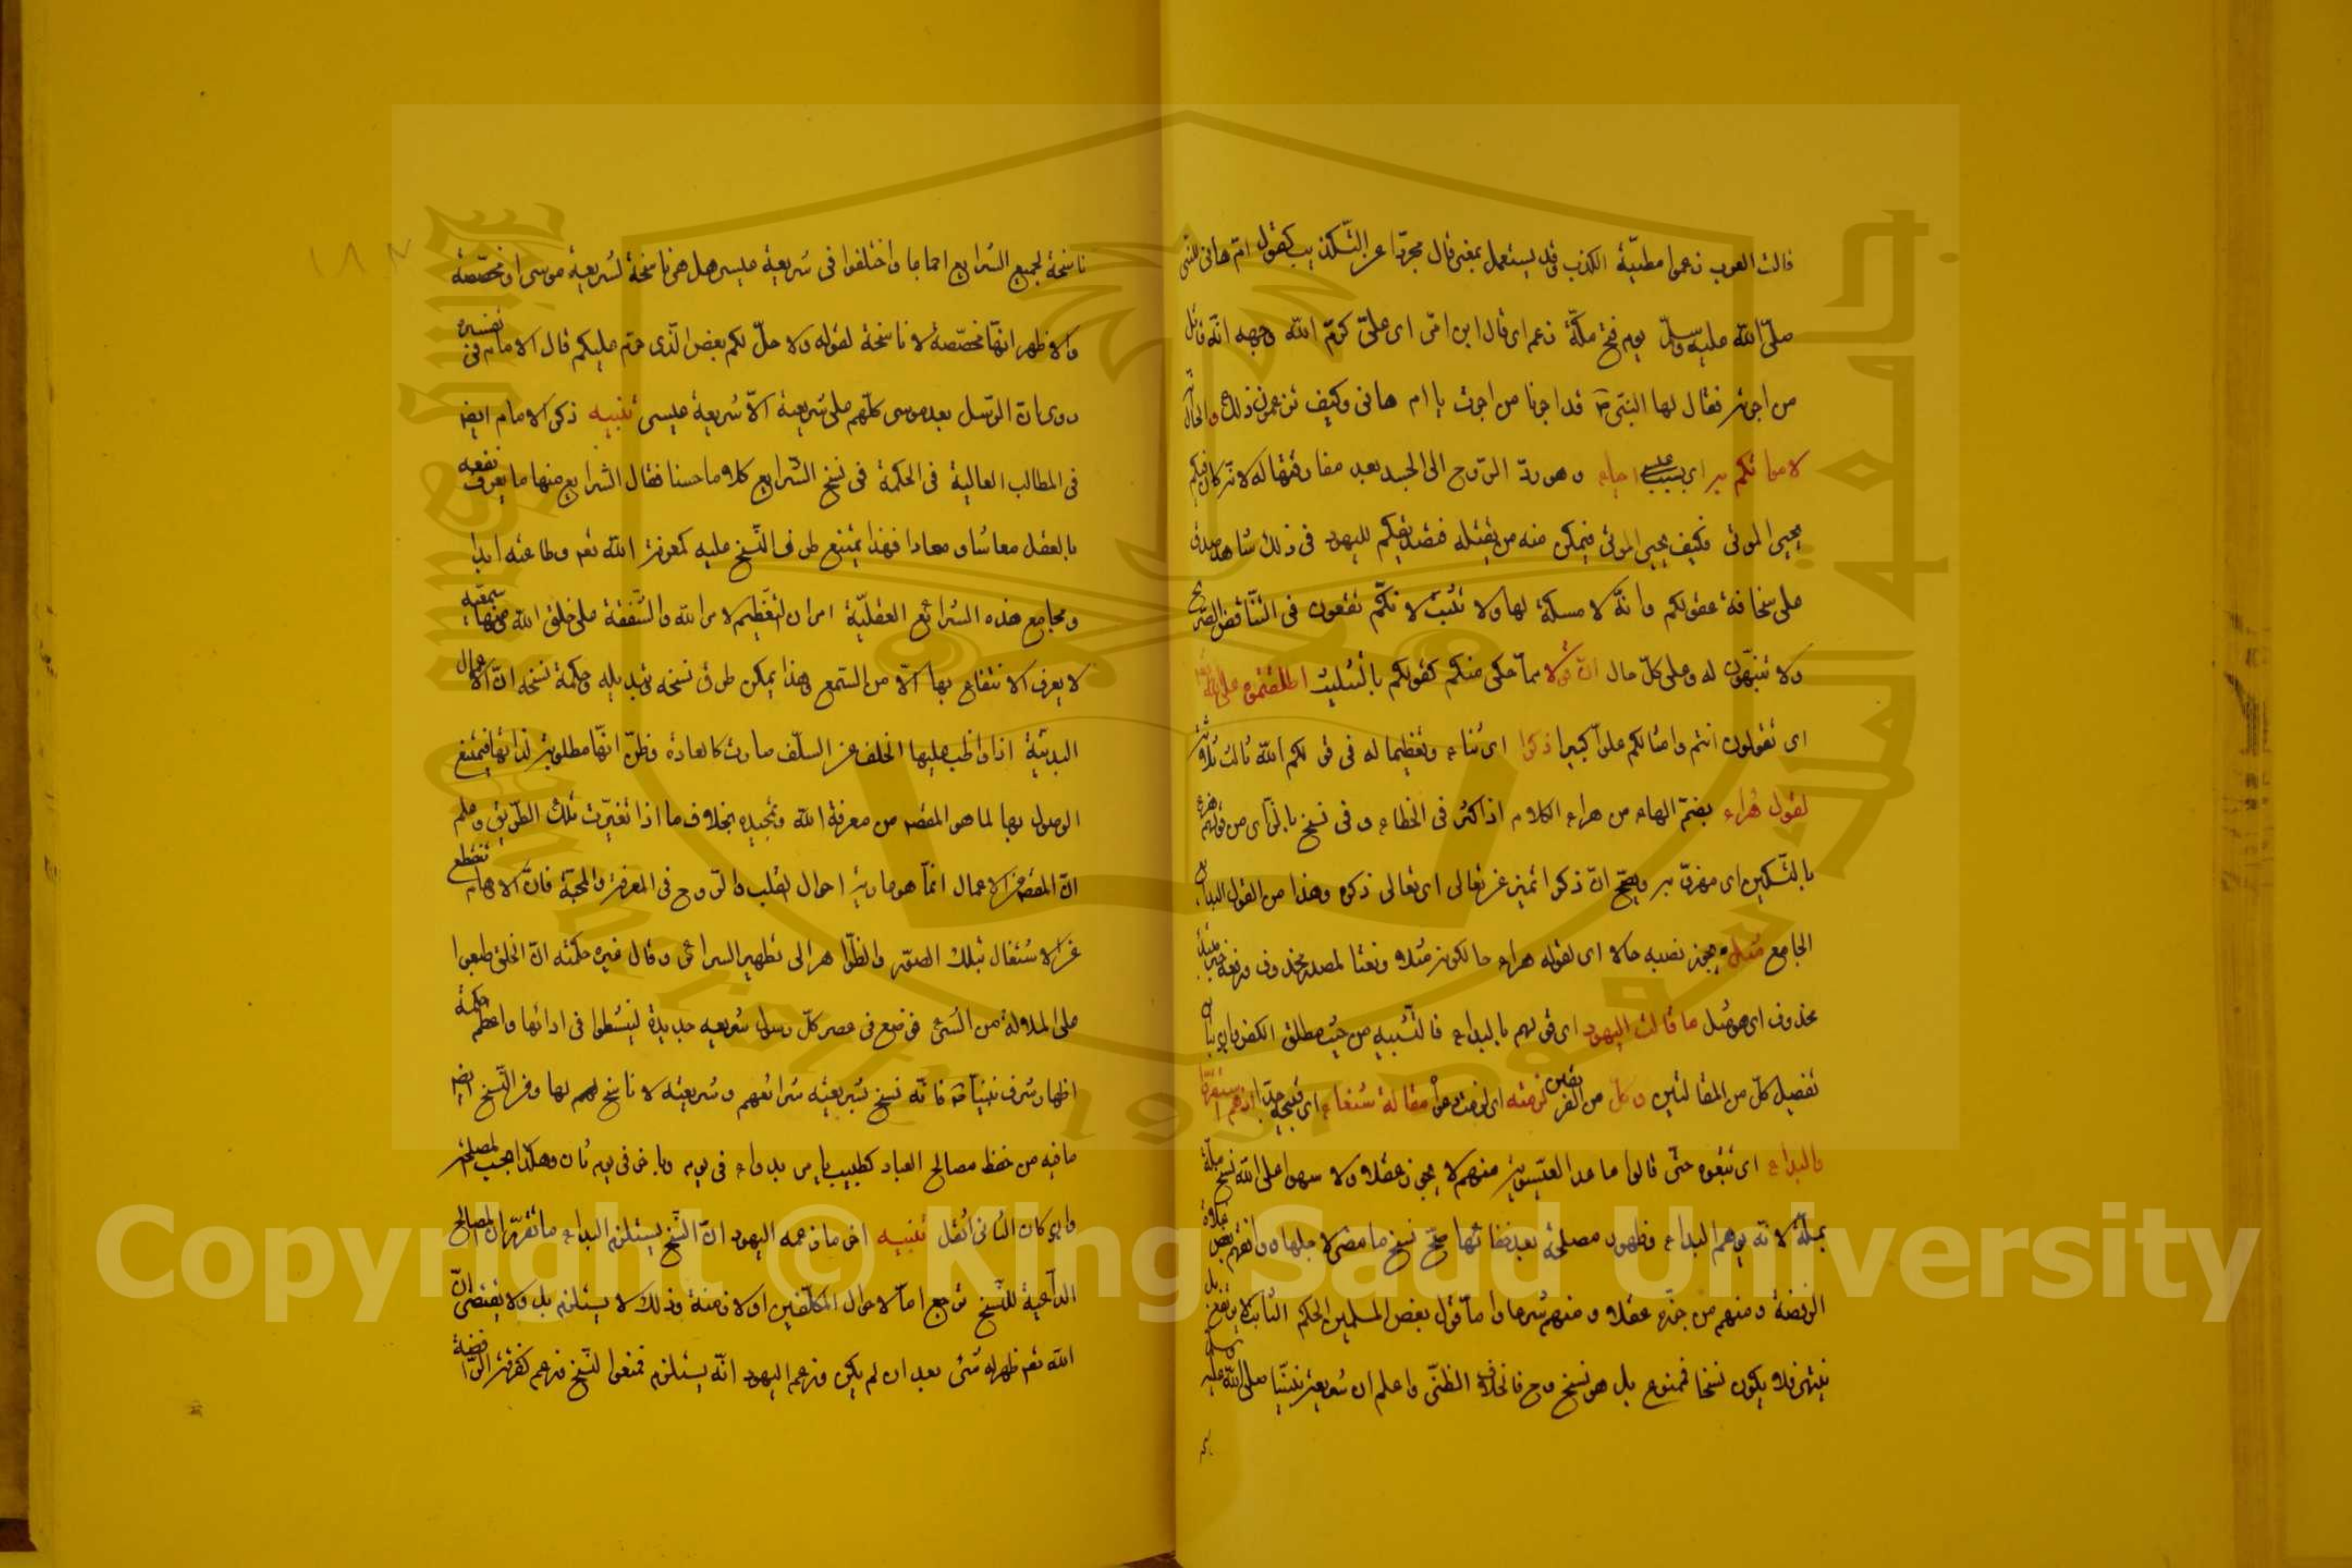 قالت العرب زعموا مطيّة الكذب وقد يستعمل بمعنى قال مجرّدا عن التكذيب كقول امّ هانئ للنبى
صلّى الله عليه وسلّم يوم فتح مكّة زعم اى قال ابن امّى اى علىّ كرّم الله وجهه انّه قاتل
من اجرته فقال لها النبىّ قد اجرنا من اجرت يا ام هانى وكيف تزعمون ذلك والحال
لامواتكم اى بسبب احياء وهو ردّ الرّوح الى الجسد بعد مفارقتها له لانّه كان فيكم
يحيى الموتى فكيف يحيى الموتى فيمكن منه من يقتله فتصديقكم لليهود فى ذلك شاهد صدق
على سخافة عقولكم وانّه لا مسكة لها ولا تثبّت لانكّم تقعون فى التناقض الصّريح
ولا تنبّهون له وعلى كلّ حال انّ قولا ممّا حكى منكم كقولكم بالتثليث اطلقتموه على الله
اى تقولون انتم وامثالكم علوّا كبيرا ذكرا اى ثناء وتعظيما له فى قولكم الله ثالث ثلاثة
لقول هراء بضمّ الهاء من هراء الكلام اذا اكثر فى الخطاء وفى نسخ بالزّاى من قولهم
بالتّسكين اى ويصحّ انّ ذكرا تميز عن تعالى اى تعالى ذكره وهذا من القول البديع
الجامع مثل ويجوز نصبه حالا اى لقوله هراء حالكونه مثلا ونعتا لمصدر محذوف ورفعه خبر مبتدأ
محذوف اى هو مثل ما قالت اليهود اى قولهم بالبداء فالتشبيه من حيث مطلق الكفر
تفصيل كلّ من المقالتين وكلّ من الفريقين لزمته اى لزمت مقالة شنعاء اى قبيحة جدّا اذ هم
والبداء اى تتبعوه حتّى قالوا ما عدا العيسويّة منهم لا يجوز عقلا ولا سمعا على الله نسخ ملّة
بملّة لانّه يوهم البداء وظهور مصلحة بعد خفائها صحّ نسخ ما مضى لاجلها ووافقهم بعض غلاة
الرفضة ومنهم من جوّزه عقلا ومنعه شرعا وامّا قول بعض المسلمين الحكم الثابت لا يرتفع بل
ينتهى فلا يكون نسخا فممنوع بل هو نسخ وح فالخلاف لفظىّ واعلم ان شريعة نبيّنا صلى الله عليه وسلم
ناسخة لجميع الشرايع اجماعا واختلفوا فى شريعة عيسى هل هى ناسخة لشريعة موسى او مخصّصة
والاظهر انّها مخصّصة لا ناسخة لقوله ولاحلّ لكم بعض الّذى حرّم عليكم قال الامام فى تفسيره
روى ان الرّسل بعد موسى كلّهم على شريعته الاّ شريعة عيسى تنبيه ذكر الامام ايض
فى المطالب العالية فى الحكمة فى نسخ الشرايع كلاما حسنا فقال الشرايع منها ما يعرف نفعه
بالعقل معاشا ومعادا فهذا يمتنع طرو النّسخ عليه كمعرفة الله تع وطاعته ابدا
ومجامع هذه الشرائع العقليّة امران التعظيم لامر الله والشّفقة على خلق الله ومنها سمعيّة
لا يعرف الانتفاع بها الاّ من السّمع وهذا يمكن طروّ نسخه وتبديله وحكمة نسخه انّ الاعمال
البدنيّة اذا واظب عليها الخلف عن السلف صارت كالعادة وظنّ انّها مطلوبة لذاتها فيمتنع
الوصول بها لما هو المقصد من معرفة الله وتمجيده بخلاف ما اذا تغيّرت تلك الطّريق وعلم
انّ المقصد من الاعمال انّما هو احوال القلب والرّوح فى المعرفة والمحبّة فانّ الاوهام تنقطع
عن الاشتغال بتلك الصور والظّواهر الى تطهير السرائر وقال غيره حكمته انّ الخلق طبعوا
على الملالة من الشئ فوضع فى عصر كلّ رسول شريعة جديدة لينشطوا فى ادائها واعظم حكمة
اظهار شرف نبيّنا فانّه نسخ بشريعته شرائعهم وشريعته لا ناسخ لها وفى النّسخ ايض
ما فيه من حفظ مصالح العباد كطبيب يامر بدواء فى يوم وبآخر فى يوم ثان وهكذا بحسب المصلحة
وان كان الثانى اثقل تنبيه اخر ما زعمه اليهود انّ النّسخ يستلزم البداء ما تقرّر ان المصالح
الدّاعية للنّسخ ترجع امّا لاحوال المكلّفين او لازمنة وذلك لا يستلزم بل ولا يقتضى انّ
الله تع ظهر له شئ بعد ان لم يكن وزعم اليهود انّه يستلزمه فمنعوا النّسخ وزعم كفرة الرّافضة